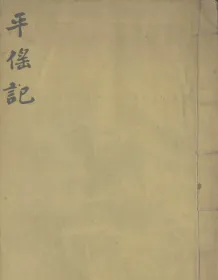 平傜記